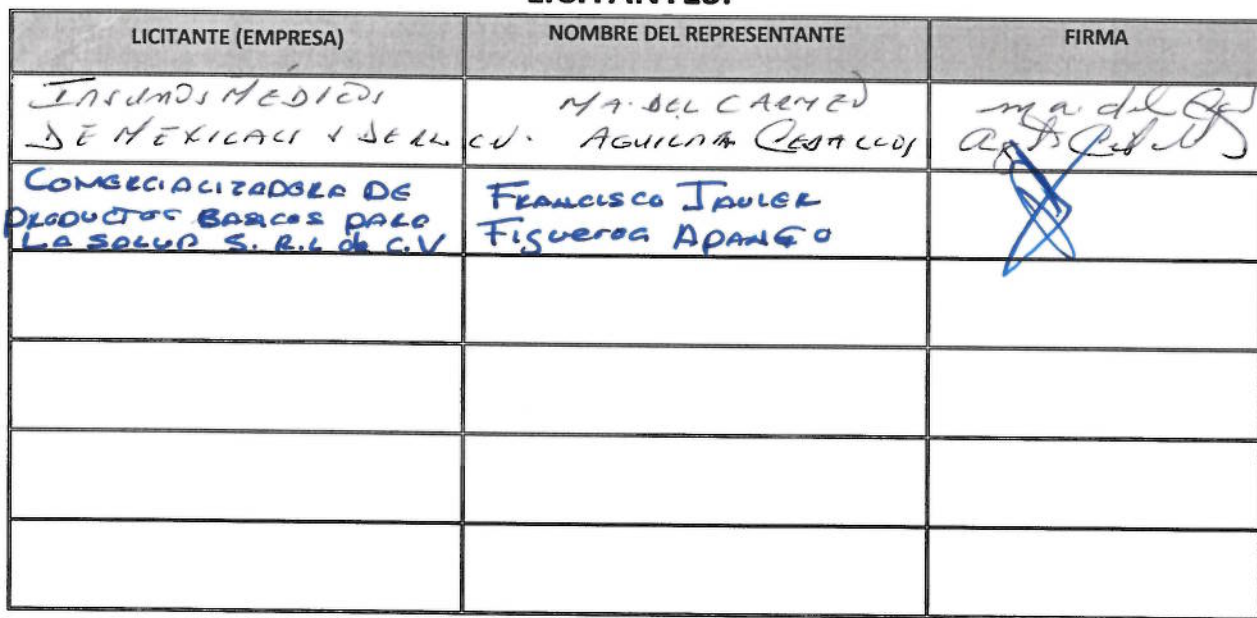 LICITANTES:
LICITANTE (EMPRESA) NOMBRE DEL REPRESENTANTE FIRMA
INSUMOS MEDICOS MA. DEL CARMEN
DE MEXICALI S DE RL CV. AGUILAR CEBALLOS
COMERCIALIZADORA DE
PRODUCTOS BASICOS PARA
LA SALUD S. R.L de C.V
FRANCISCO JAVIER
FIGUEROA APANGO
ma. del